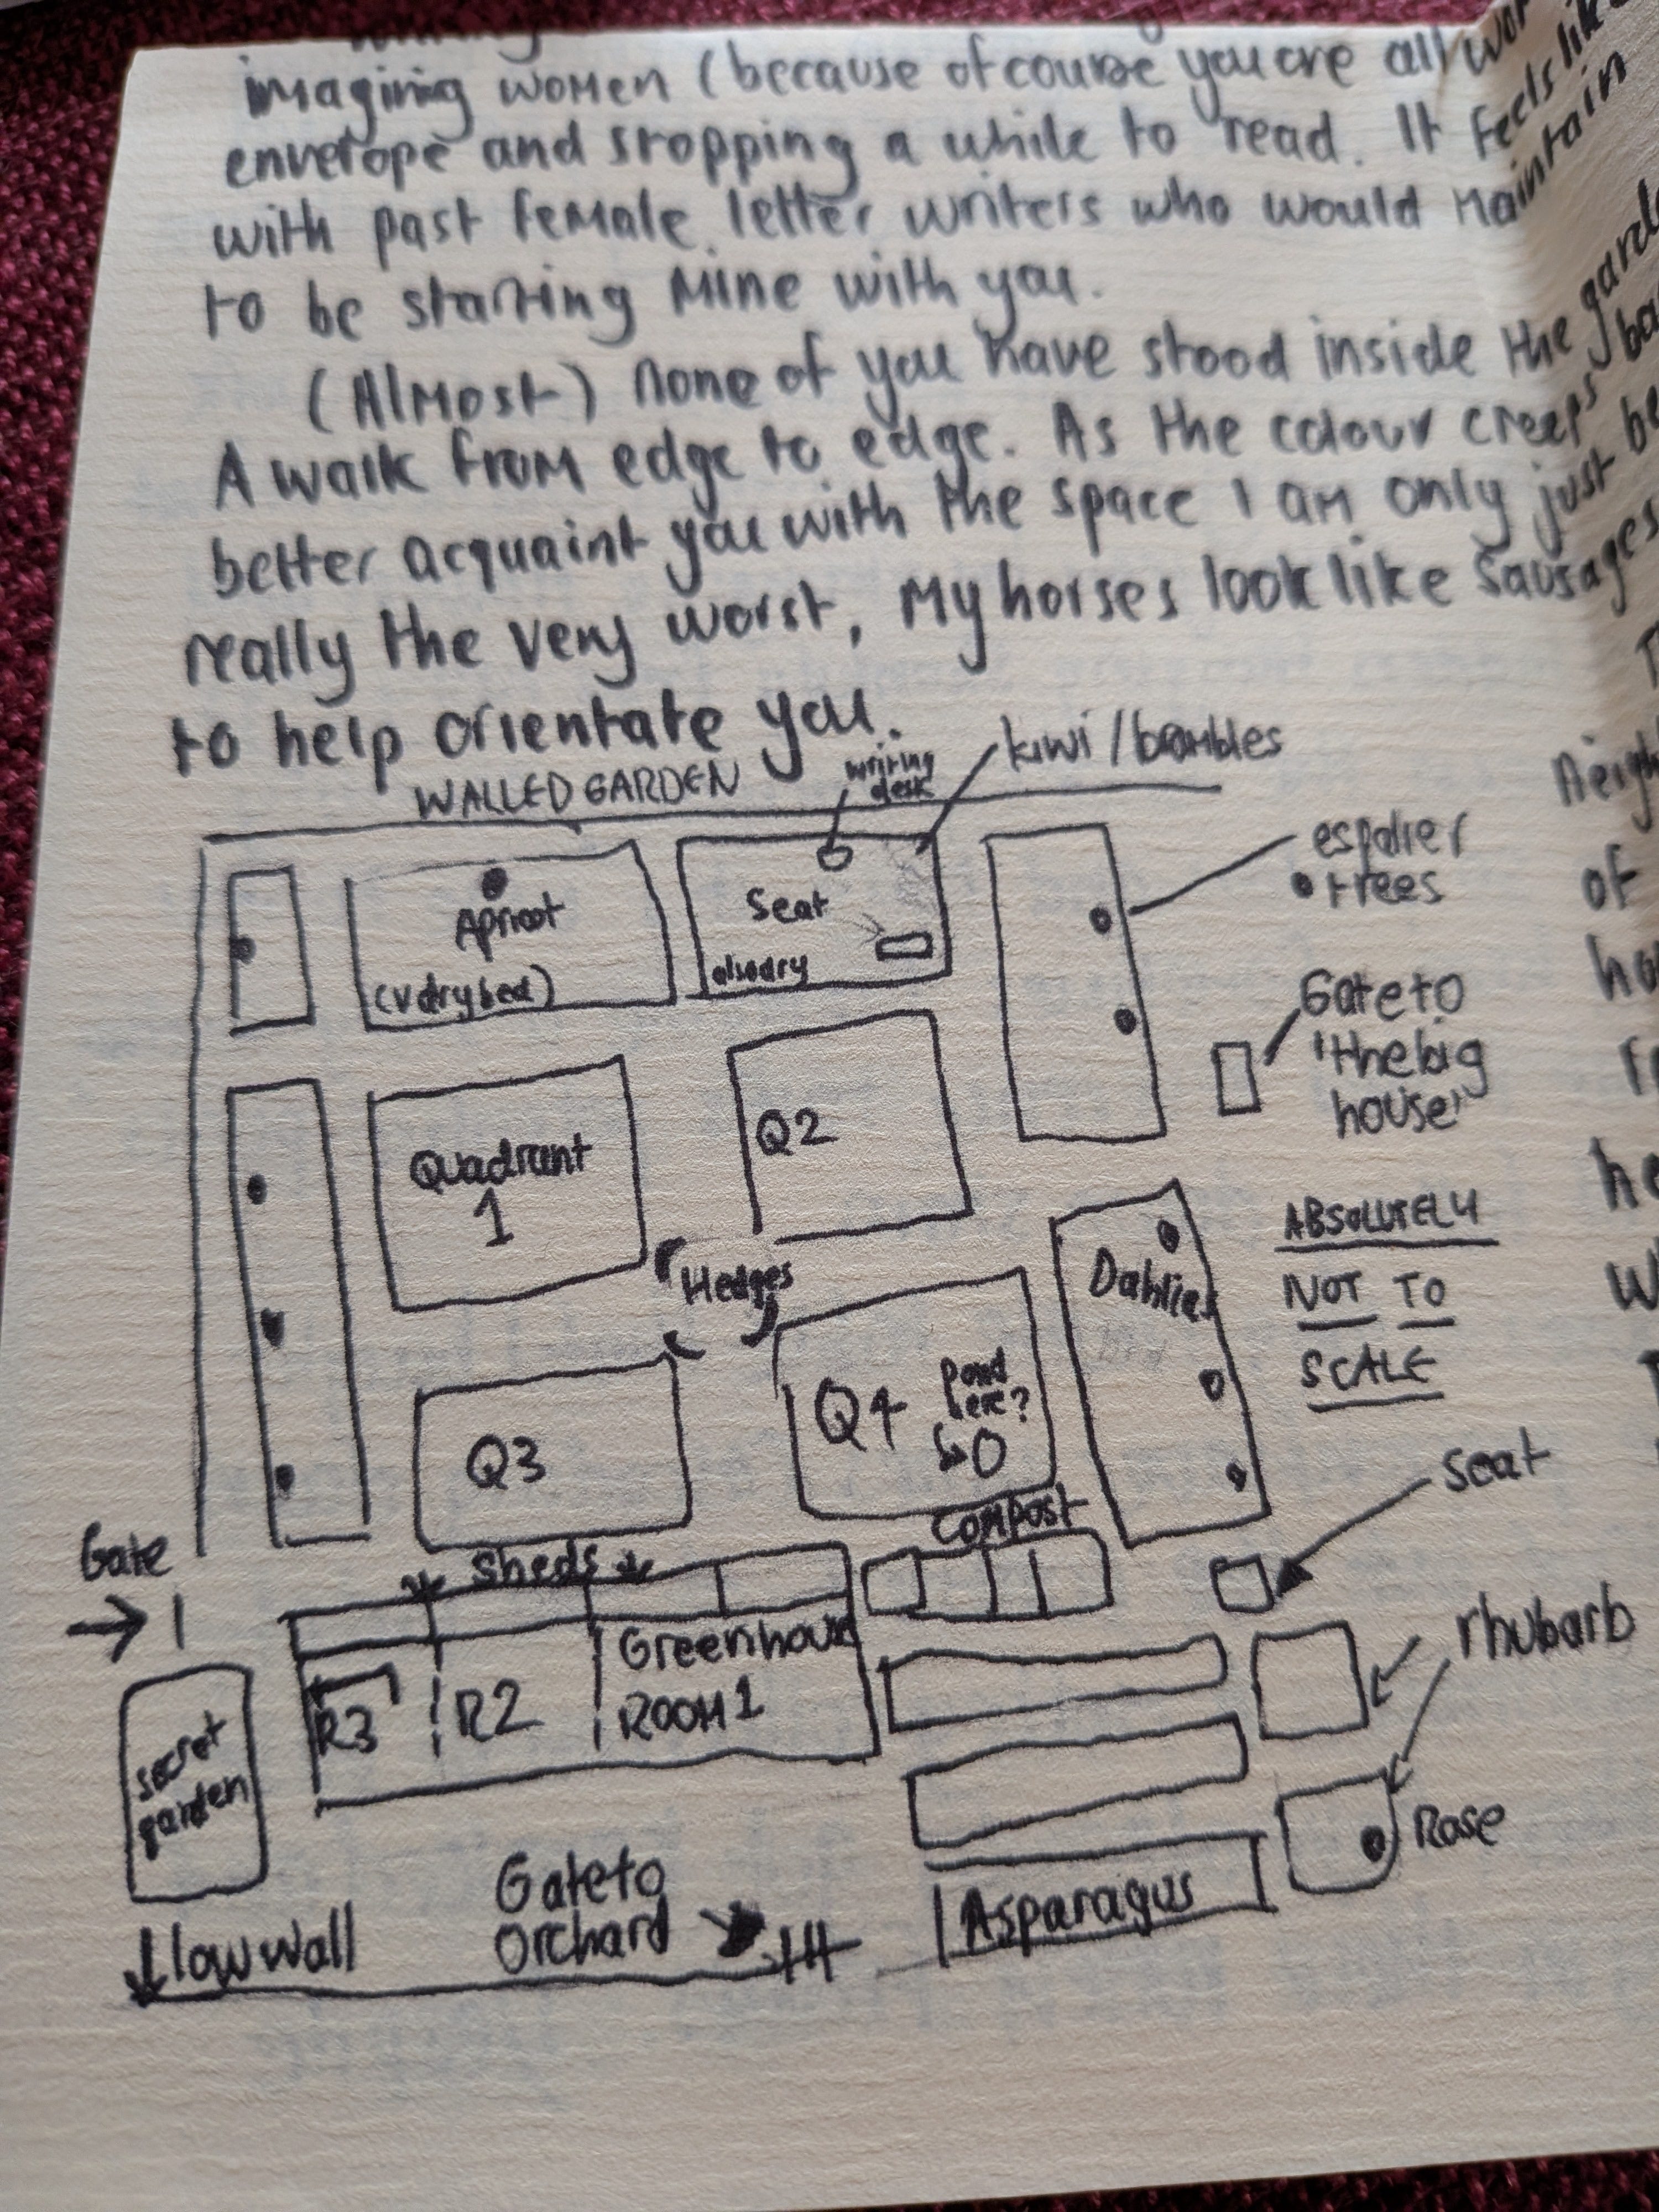 imagining women (because of course you are all
envelope and stopping a while to read. It feels like
with past female letter writers who would maintain
to be starting mine with you.
(Almost) none of you have stood inside the
A walk from edge to edge. As the colour creeps
better acquaint you with the space I am only just
really the very worst, my horses look like sausages
to help orientate you.
WALLED GARDEN
writing
desk
kiwi / brambles
espalier
• trees
Apricot
(v dry bed)
Seat
also dry
Gate to
'the big
house'
Quadrant
1
Q2
Hedges
Dahlias
ABSOLUTELY
NOT TO
SCALE
Q3
Q4
pond
here?
seat
Compost
Gate
sheds
rhubarb
Greenhouse
ROOM 1
R2
R3
secret
garden
Rose
Asparagus
Gate to
Orchard
low wall